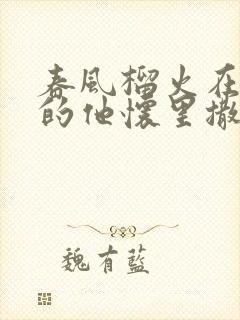 春風榴火在
的他懷里撒
魏有藍